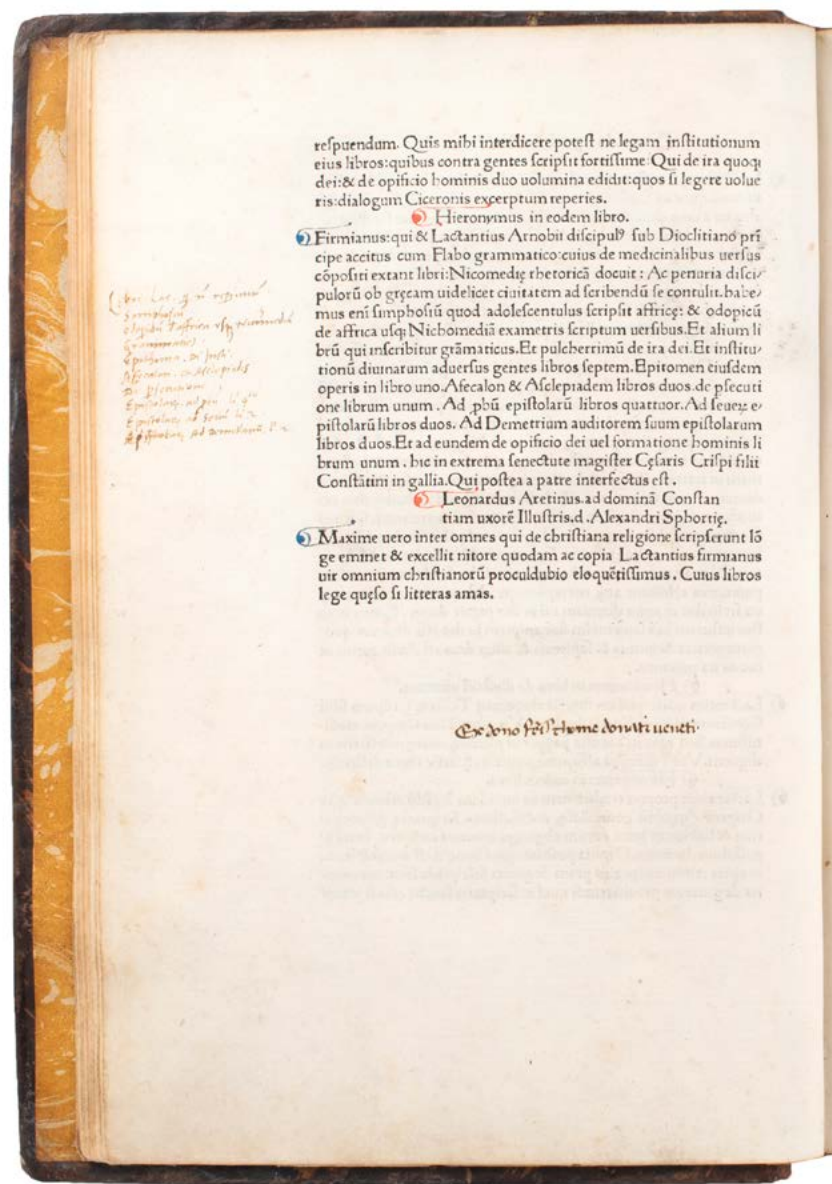 reſpuendum. Quis mihi interdicere poteſt ne legam inſtitutionum
eius libros:quibus contra gentes ſcripſit fortiſſime:Qui de ira quoqȝ
dei:& de opificio hominis duo uolumina edidit:quos ſi legere uolue
ris:dialogum Ciceronis excerptum reperies.
Hieronymus in eodem libro.
Firmianus:qui & Lactantius Arnobii diſcipulꝰ ſub Dioclitiano prī
cipe accitus cum Flabo grammatico:cuius de medicinalibus uerſus
cōpoſiti extant libri:Nicomedię rhetoricā docuit : Ac penuria diſci/
pulorū ob gręcam uidelicet ciuitatem ad ſcribendū ſe contulit.habe/
mus enī ſimphoſiū quod adoleſcentulus ſcripſit affricę: & odopicū
de affrica uſqȝ Nichomediā exametris ſcriptum uerſibus.Et alium li
brū qui inſcribitur grāmaticus.Et pulcherrimū de ira dei.Et inſtitu/
tionū diuinarum aduerſus gentes libros ſeptem.Epitomen eiuſdem
operis in libro uno.Aſecalon & Aſclepiadem libros duos.de pſecuti
one librum unum . Ad ꝓbū epiſtolarū libros quattuor.Ad ſeueꝝ e/
piſtolarū libros duos. Ad Demetrium auditorem ſuum epiſtolarum
libros duos.Et ad eundem de opificio dei uel formatione hominis li
brum unum . hic in extrema ſenectute magiſter Cęſaris Criſpi filii
Conſtātini in gallia.Qui poſtea a patre interfectus eſt .
Leonardus Aretinus.ad dominā Conſtan
tiam uxorē Illuſtris.d .Alexandri Sphortię.
Maxime uero inter omnes qui de chriſtiana religione ſcripſerunt lō
ge eminet & excellit nitore quodam ac copia Lactantius firmianus
uir omnium chriſtianorū proculdubio eloquētiſſimus . Cuius libros
lege quęſo ſi litteras amas.
Ex dono thome donati ueneti.